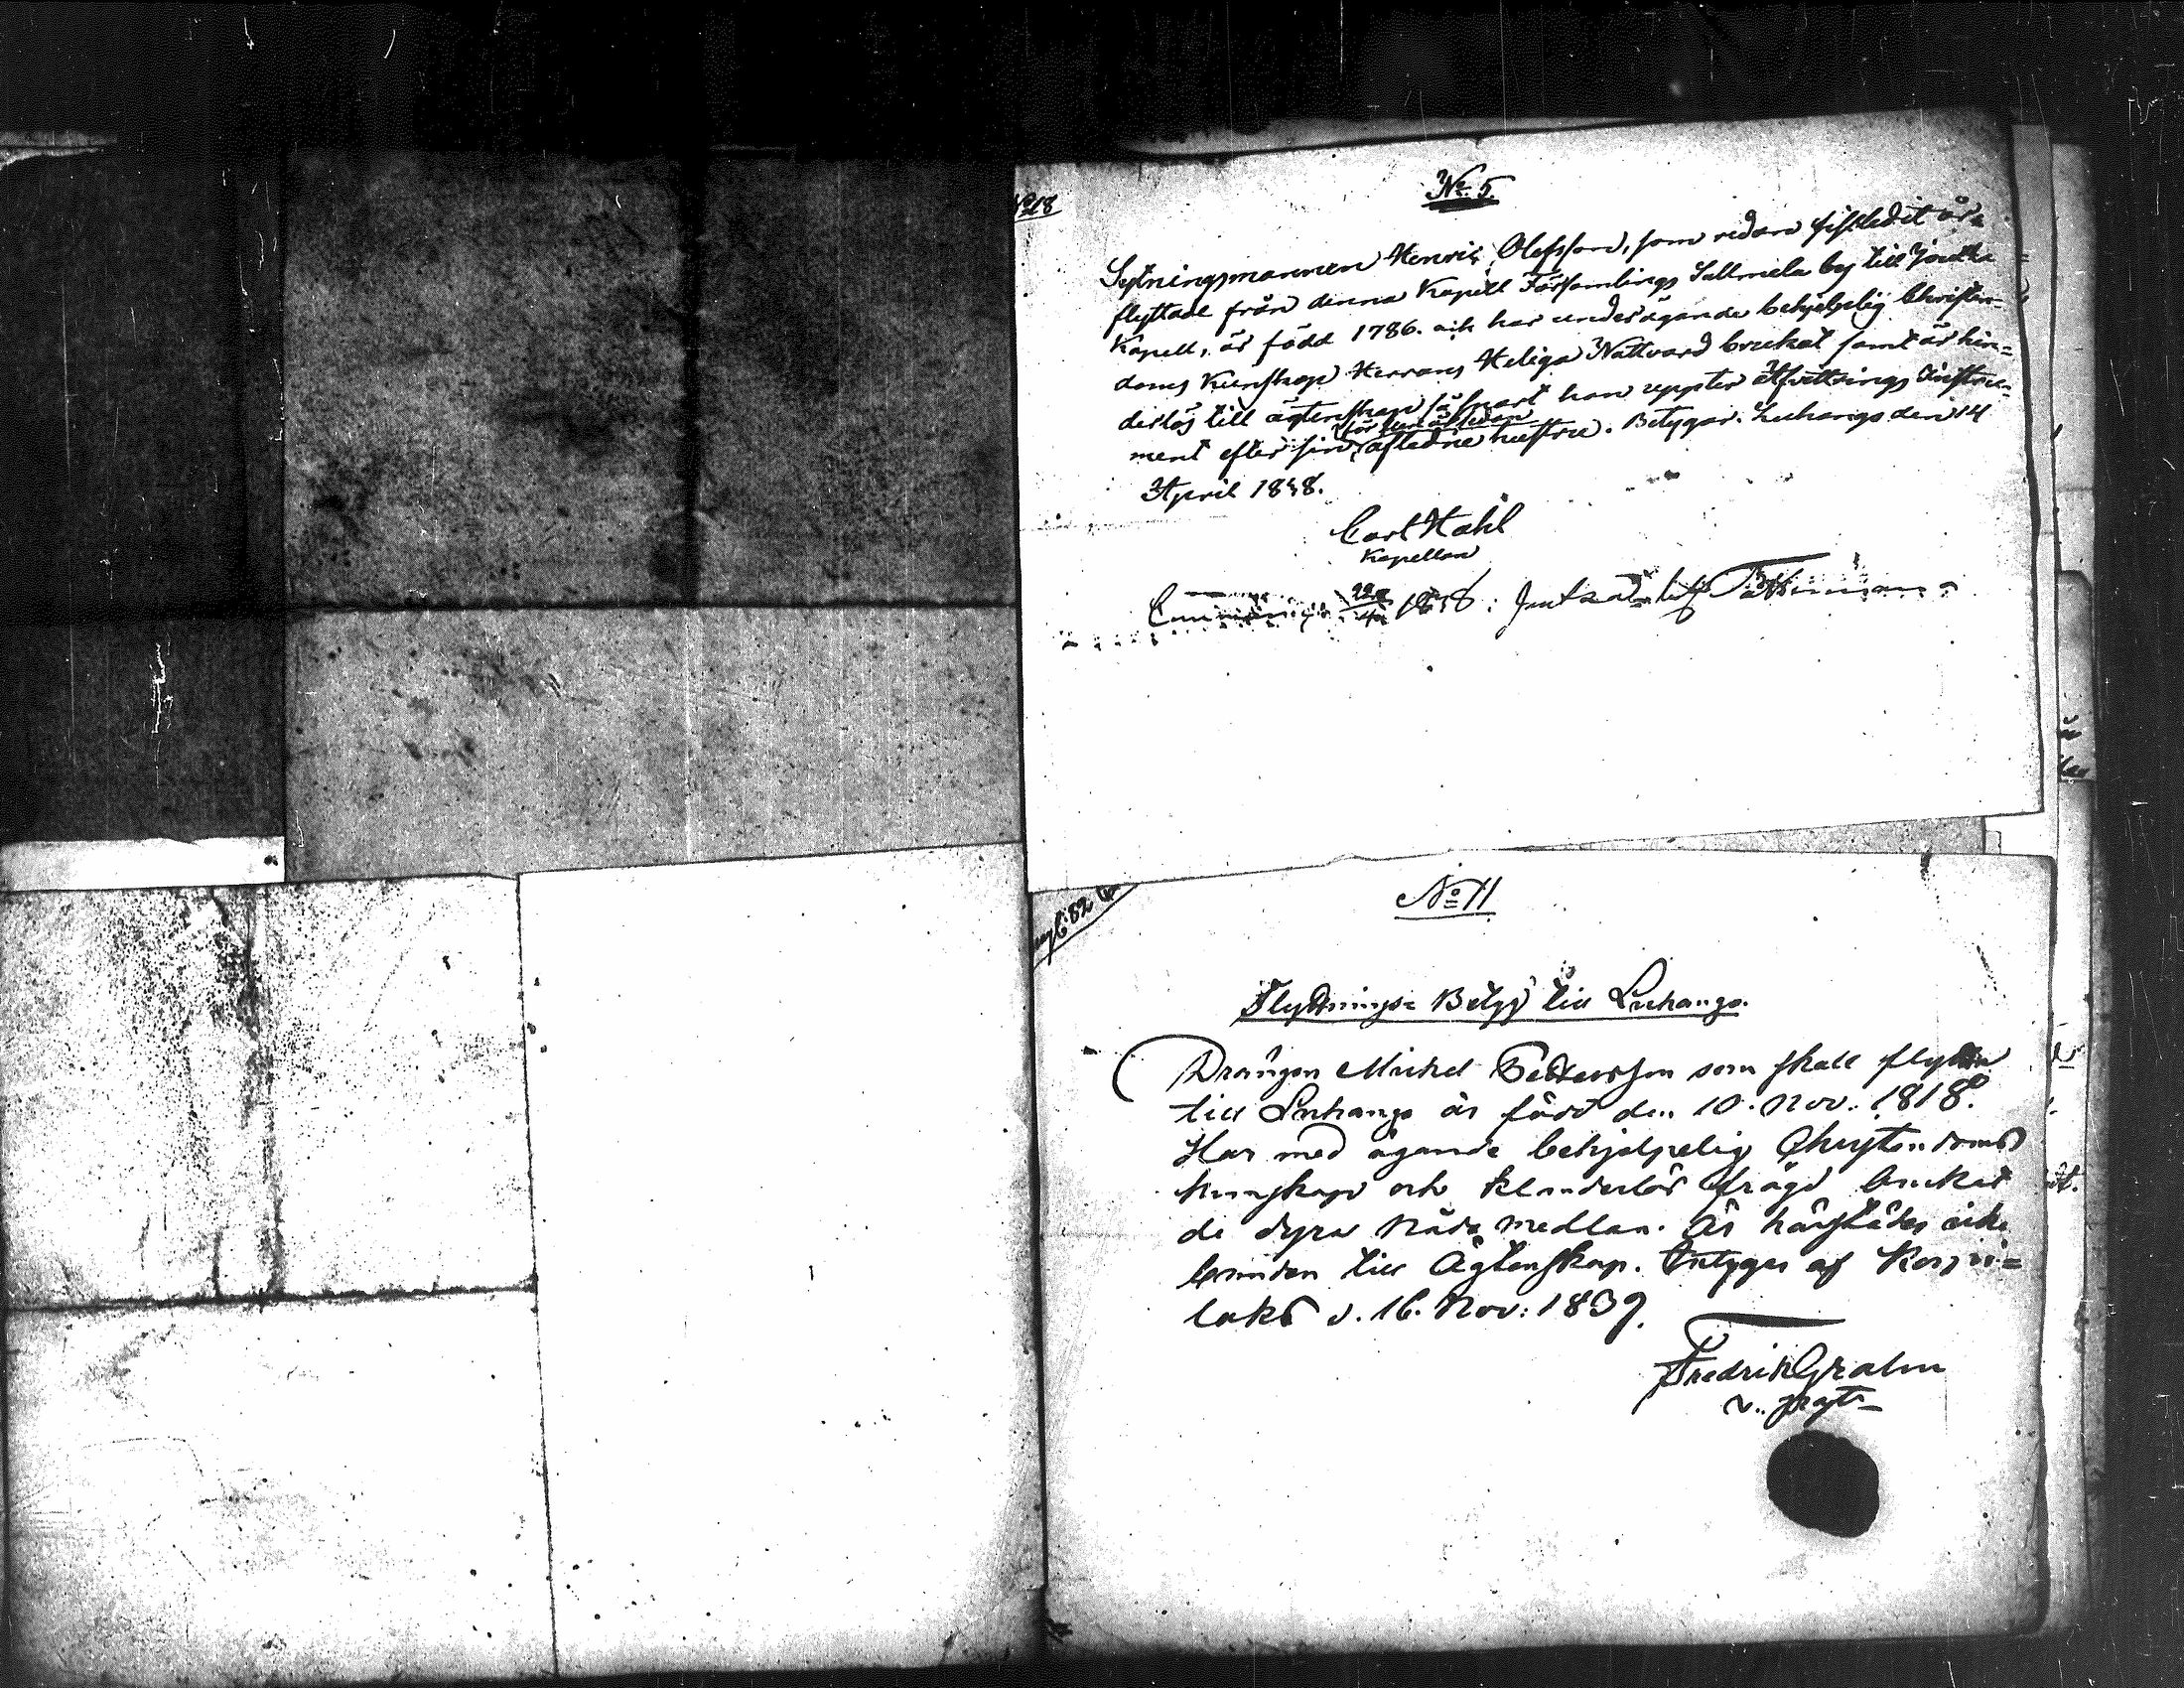 No 18
No. 5.
Sytningsmannen Henric Olofsson, som redan sistledit år
flyttade från denna Kapell Församlings Tallmela by till Joutsa
Kapell, är född 1786. och har under ägande behjelplig Christen-
doms Kunskap Herrans Heliga Nattvard brukat samt är hin-
derlös till ägtenskap så snart han uppter afvittrings Instru-
för fem år sedan
ment efter sin afledne hustru. Betygar. Luhango den 14
April 1838.
Carl Stahl
Kapellan
1838. Joutsa
No 11
Flyttnings-Betyg till Luhango.
Drängen Michel Pettersson som skall flytta
till Luhango är född den 10. Nov. 1818.
Har med ägande behjelpelig Christendoms
kunskap och klanderlös frägd brukat
de dyra Nåda medlen. Är härstädes icke
bunden till Ägtenskap. Intygas af Korpi-
laks d. 16. Nov: 1839.
Fredrik Grahn
v. past.